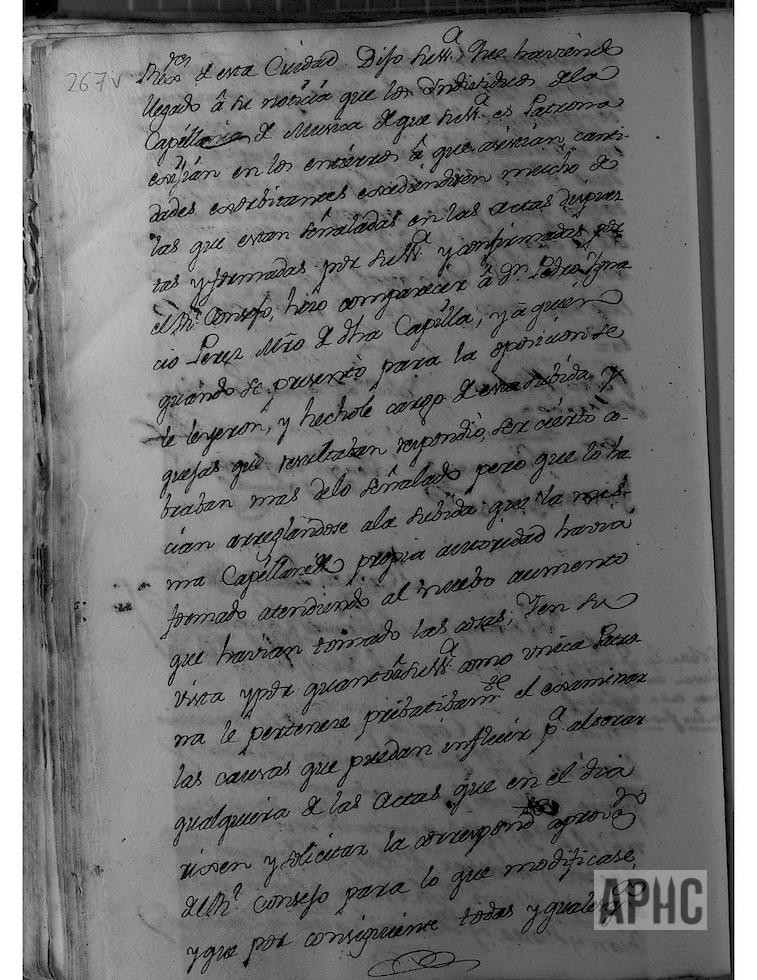 267v
Rixⁿ ᵈᵉˢ de esta Ciudad. Dijo su sª. Que haviendo
llegado â su noticia que los Individuos dela
Capilla de Musica de que su sª. es Patrona
exijian en los entierros â que asistian, canti-
dades exorbitantes excediendose en mucho de
las que estan señaladas en las actas dispues
tas y formadas por su sª. y confirmadas por
el Rˡ. Consejo, hizo comparecer â Dⁿ. Pedro Ygna
cio Perez Mrô de dha Capilla, y â quien
quando se presentò para la oposicion se
le leyeron, y hechole cargo de esta subida y
quejas que resultaban respondiò, ser cierto co-
braban mas delo señalado pero que lo ha
cian arreglandose ala subida que la mis-
ma Capilla de propia autoridad havia
formado atendiendo al nuebo aumento
que havian tomado las cosas; Y en su
vista y por quanto â su sª. como unica Patro
na le pertenece pribatibamᵗᵉ. el examinar
las causas que puedan influir pª. alterar
qualquiera de las Actas que en el dia
rixen y solicitar la correspondᵗᵉ aprovᵒⁿ
de Rˡ. Consejo para lo que modificase,
y que por consiguiente todas y qualesqª
APHC